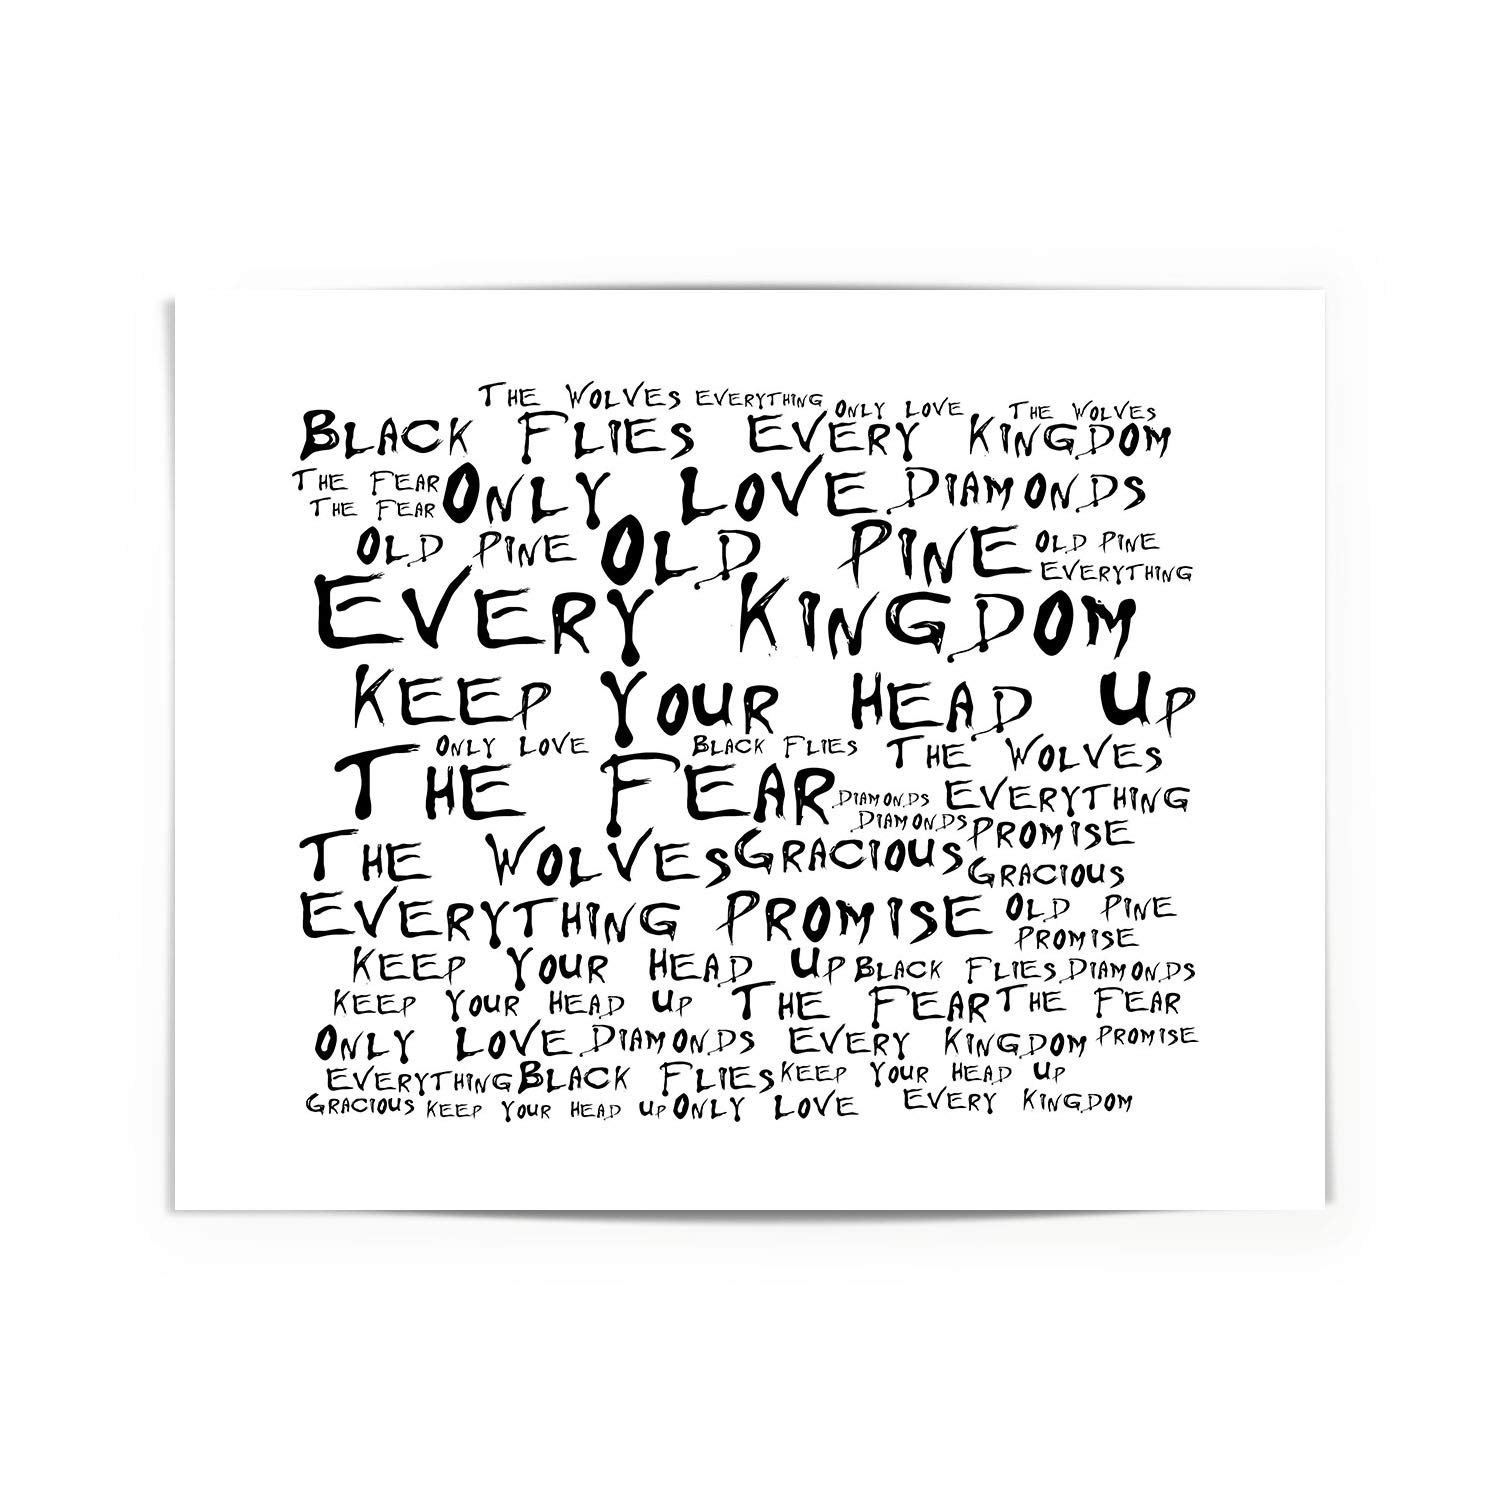 The Wolves Everything Only Love The Wolves
Black Flies Every Kingdom
The Fear Only Love Diamonds
The Fear
Old Pine Old Pine Old Pine
Everything
Every Kingdom
Keep Your Head Up
Only Love Black Flies The Wolves
The Fear Diamonds Everything
Diamonds Promise
The Wolves Gracious Gracious
Everything Promise Old Pine
Promise
Keep Your Head Up Black Flies Diamonds
Keep Your Head Up The Fear The Fear
Only Love Diamonds Every Kingdom Promise
Everything Black Flies Keep Your Head Up
Gracious Keep Your Head Up Only Love Every Kingdom